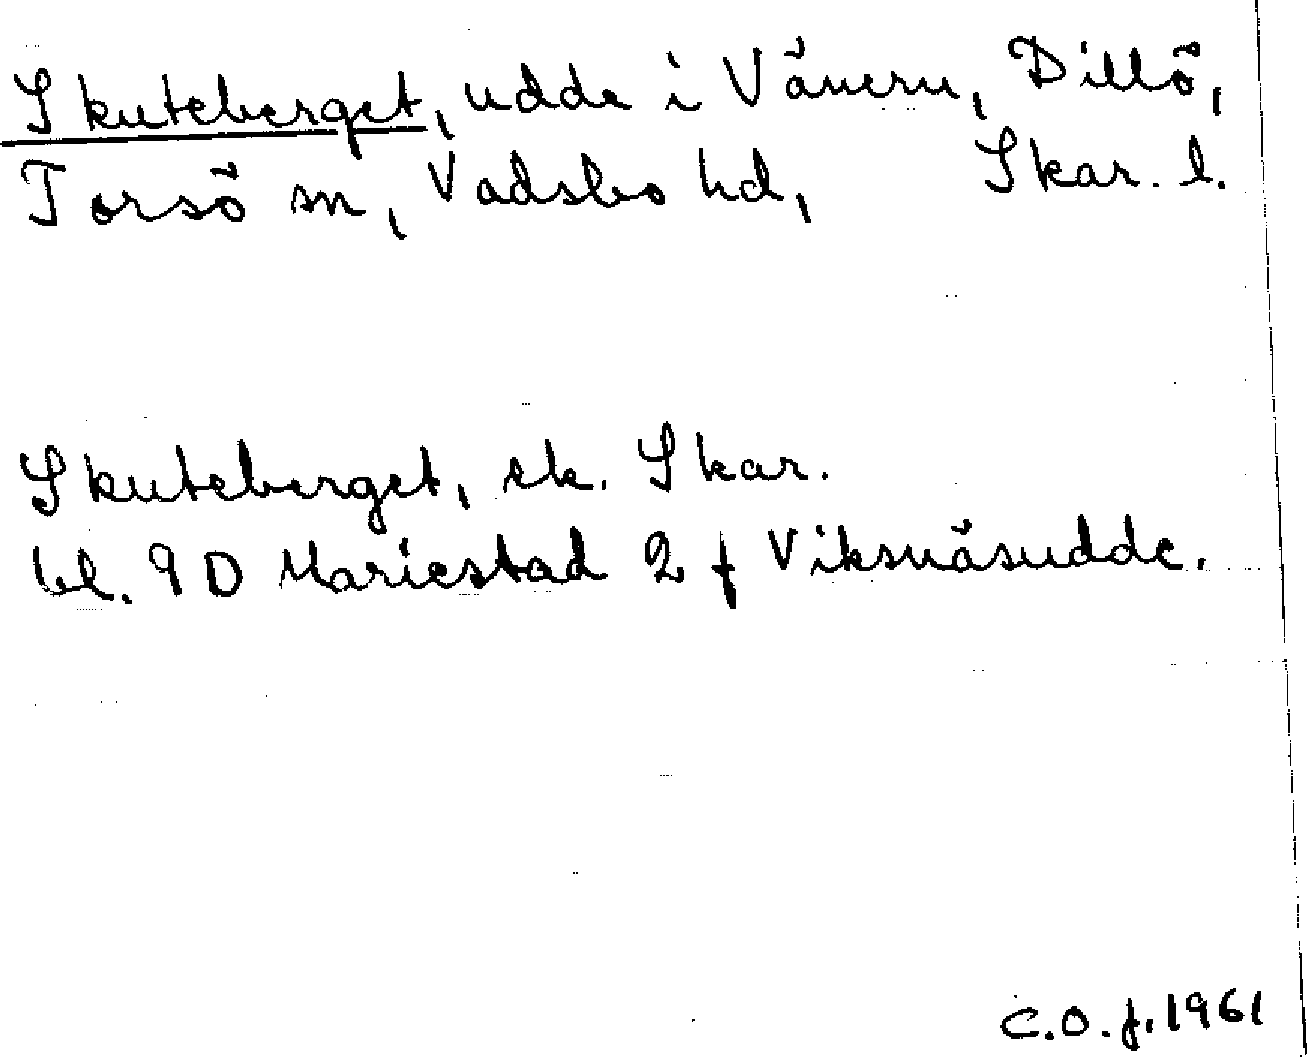 Skuteberget, udde i Vänern, Dillö,
Torsö sn, Vadsbo hd, Skar. l.
Skuteberget, ek. Skar.
bl. 9D Mariestad 2 f Viksnäsudde.
C.O.f. 1961